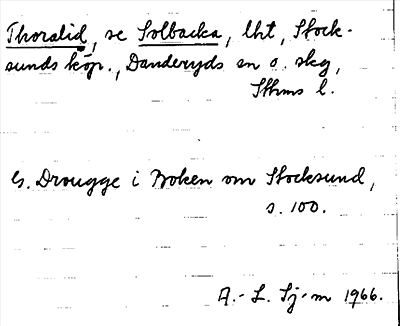 Thoralid, se Solbacka, lht, Stock-
sunds köp., Danderyds sn o. skg,
Sthms l.
G. Drougge i Boken om Stocksund,
s. 100.
A.-L. Sj-m 1966.